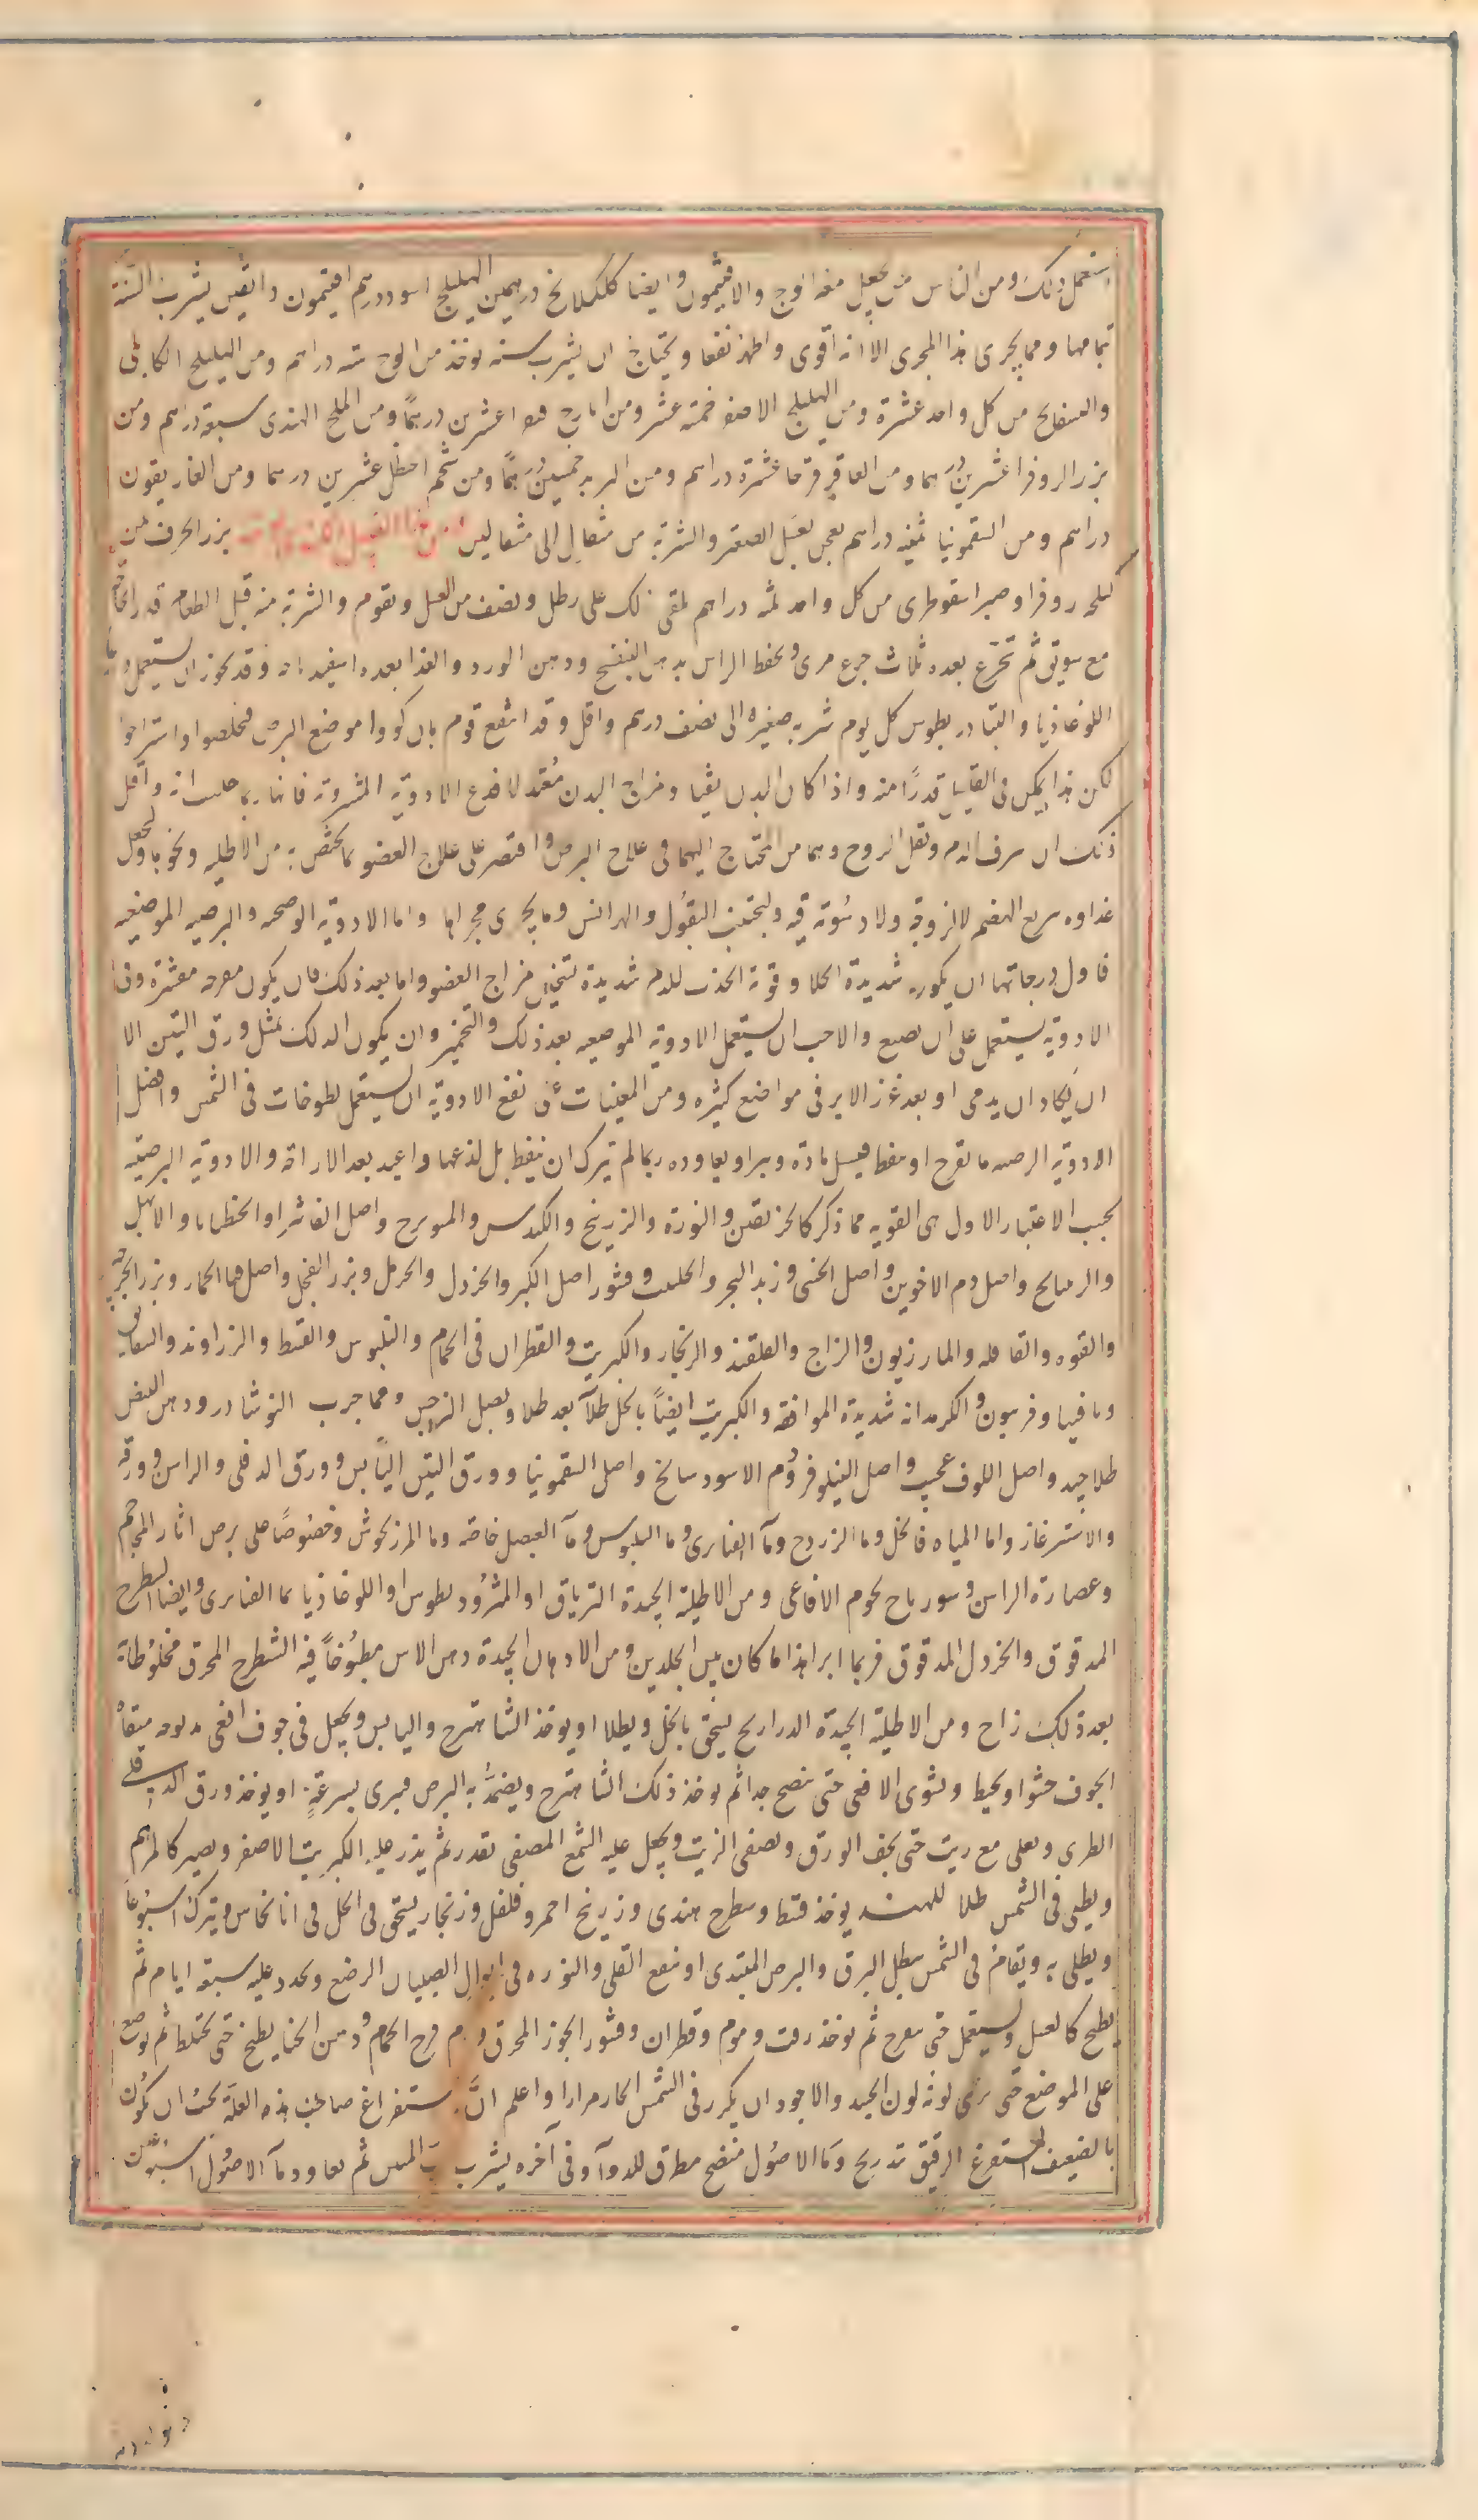 استعمل ذلك ومن الناس من يجعل معه الوج والافتيمون وايضا كلكلانج درهمين الهليلج اسود درهم افتيمون دانقين يشرب السنة
بتمامها ومما يجرى هذا المجرى الا انه اقوى واظهر نفعا ويحتاج ان يشرب سنه يوخذ من الوج سته دراهم ومن الهليلج الكابلى
والبسفايج من كل واحد عشرة ومن الهليلج الاصفر خمسة عشر ومن ايارج فيقرا عشرين درهمًا ومن الملح الهندى سبعة دراهم ومن
بزر الروفرا عشرين درهما ومن العاقرقرحا عشرة دراهم ومن التربد خمسين درهمًا ومن شحم الحنظل عشرين درهما ومن الغاريقون
دراهم ومن السقمونيا ثمنيه دراهم يعجن بعسل الصعتر والشربة من مثقال الى مثقالين بزر الحرف من
كيلجه روفرا وصبر اسقوطرى من كل واحد ثلثه دراهم يلقى ذلك على رطل ونصف من العسل ويقوم والشربة منه قبل الطعام قدر
مع سويق ثم تجرع بعده ثلاث جرع مرى ويحفظ الراس بدهن البنفسج ودهن الورد والغذا بعده اسفيدباجه وقد يجوز ان يستعمل
اللوغاذيا والثيادريطوس كل يوم شربه صغيره الى نصف درهم واقل وقد انتفع قوم بان كووا موضع البرص فتخلصوا واستراحوا
لكن هذا يمكن فى القليل قدرًا منه واذا كان البدن نقيا ومزاج البدن معتدلا فدع الادوية المشروبة فانها ربما جلبت افة واقل
ذلك ان يرق الدم ويقل الروح وهما من المحتاج اليهما فى علاج البرص واقتصر على علاج العضو بما يختص به من الاطليه ونحوها وليجعل
غذاوه سريع الهضم لا لزوجة ولا دسومة فيه وليجتنب البقول والهرائس وما يجرى مجراها واما الادوية الوضحيه والبرصيه الموضعيه
فاول درجاتها ان يكون شديدة الجلا وقوية الجذب للدم شديدة تسخين مزاج العضو واما بعد ذلك فان يكون مقرحه مقشرة وفى
الادوية يستعمل على ان يصبغ والاحب ان يستعمل الادوية الموضعيه بعد ذلك والتحمير وان يكون الدلك بمثل ورق التين الا
ان يكاد ان يدمى او بعد غرز الابر فى مواضع كثيره ومن المعينات على نفع الادوية ان يستعمل لطوخات فى الشمس وافضل
الادوية البرصيه ما يقرح او ينفط فيسيل مادة ويبرا ويعاوده ربما لم يترك ان ينفط بل لذعها واعيد بعد الاراحة والادوية البرصيه
بحسب الاعتبار الاول هى القويه مما ذكر كالخربقين والنورة والزرنيخ والكندس والميويزج واصل الفاشرا والخنظيانا والابهل
والراتيانج واصل دم الاخوين واصل الخنثى وزبد البحر والحلتيت وقشور اصل الكبر والخردل والحرمل وبزر الفجل واصل قثا الحمار وبزر الجرجير
والفوه والقاقله والمازريون والزاج والقلقند والزنجار والكبريت والقطران فى الحمام والبلبوس والقسط والزراوند والشقايق
وثافسيا وفربيون والكرمدانه شديدة الموافقه والكبريت ايضًا بالخل طلاً بعد طلا وبصل النرجس ومما جرب النوشادر ودهن البيض
طلا جيد واصل اللوف عجيب واصل النيلوفر ودم الاسود سالخ واصل السقمونيا وورق التين اليابس وورق الدفلى والراسن وورقه
والاشترغاز واما المياه فالخل وما الزردج وما القنابرى وما البلبوس وماء العنصل خاصه وما المرزنجوش وخصوصًا على برص اثار المحجم
وعصارة الراسن وسورباج لحوم الافاعى ومن الاطلية الجيدة الترياق او المثروديطوس او اللوغاذيا بما القنابرى وايضا الشيطرج
المدقوق والخردل المدقوق فربما ابرا هذا ما كان بين الجلدين ومن الادهان الجيدة دهن الاس مطبوخًا فيه الشيطرج المحرق مخلوطًا به
بعد ذلك زاج ومن الاطلية الجيدة الدراريح يسحق بالخل ويطلا او يوخذ الشاهترج واليابس ويجعل فى جوف افعى مذبوحه منقاة
الجوف حشوا ويخيط ويشوى الافعى حتى ينضج جدا ثم يوخذ ذلك الشاهترج ويضمد به البرص فيبرى بسرعة او يوخذ ورق الدفلى
الطرى ويغلى مع زيت حتى يجف الورق ويصفى الزيت ويجعل عليه الشمع المصفى بقدر ثم يذر عليه الكبريت الاصفر ويصير كالمرهم
ويطلى فى الشمس طلا للهند يوخذ قسط وشيطرج هندى وزرنيخ احمر وفلفل وزنجار يسحق فى الخل فى انا نحاس ويترك اسبوعًا
ويطلى به ويقام فى الشمس يبطل البرق والبرص المبتدى او ينقع القلى والنوره فى ابوال الصبيان الرضع ويجدد عليه سبعة ايام ثم
يطبخ كالعسل ويستعمل حتى يقرح ثم يوخذ زفت وموم وقطران وقشور الجوز المحرق ودم فرخ الحمام ودهن الحنا يطبخ حتى يختلط ثم يوضع
على الموضع حتى يرى لونه لون الجيد والاجود ان يكرر فى الشمس الحار مرارا واعلم ان استفراغ صاحب هذه العلة يجب ان يكون
بالضعيف المستفرغ الرقيق بتدريج وماء الاصول منضج مطرق للدواء وفى آخره يشرب ثم يعاود ماء الاصول اسبوعين